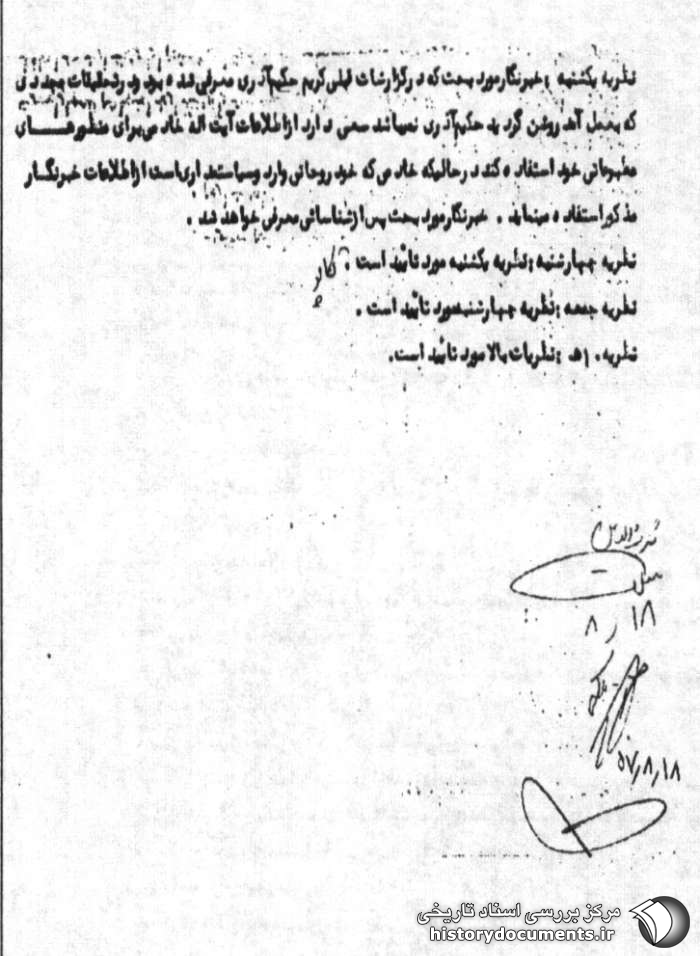 نظریه یکشنبه : خبرنگار مورد بحث که در گزارشات قبلی کریم حکیم آذری معرفی شده بود و در تحقیقات مجددی
که بعمل آمد روشن گردید حکیم آذری نمیباشد سعی دارد از اطلاعات آیت اله خادمی برای منظورهــــای
مطبوعاتی خود استفاده کند در حالیکه خادمی که خود روحانی وارد و سیاستمداری است از اطلاعات خبرنگار
مذکور استفاده مینماید . خبرنگار مورد بحث پس از شناسائی معرفی خواهد شد .
نظریه چهارشنبه : نظریه یکشنبه مورد تائید است .
نظریه جمعه : نظریه چهارشنبه مورد تائید است .
نظریه . اه : نظریات بالا مورد تائید است .
۱۸ ر ۸
۵۷٫۸٫۱۸
مرکز بررسی اسناد تاریخی
historydocuments.ir